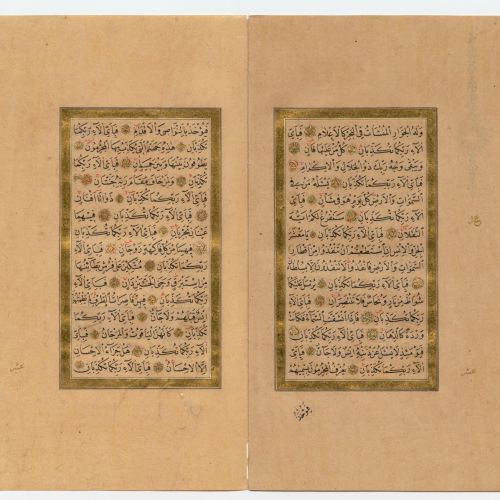 وَلَهُ الْجَوَارِ الْمُنْشَآتُ فِي الْبَحْرِ كَالْأَعْلَامِ فَبِأَيِّ
آلَاءِ رَبِّكُمَا تُكَذِّبَانِ كُلُّ مَنْ عَلَيْهَا فَانٍ
وَيَبْقَى وَجْهُ رَبِّكَ ذُو الْجَلَالِ وَالْإِكْرَامِ
فَبِأَيِّ آلَاءِ رَبِّكُمَا تُكَذِّبَانِ يَسْئَلُهُ مَنْ فِي
السَّمَوَاتِ وَالْأَرْضِ كُلَّ يَوْمٍ هُوَ فِي شَأْنٍ
فَبِأَيِّ آلَاءِ رَبِّكُمَا تُكَذِّبَانِ سَنَفْرُغُ لَكُمْ أَيُّهَ
الثَّقَلَانِ فَبِأَيِّ آلَاءِ رَبِّكُمَا تُكَذِّبَانِ يَا مَعْشَرَ
الْجِنِّ وَالْإِنْسِ إِنِ اسْتَطَعْتُمْ أَنْ تَنْفُذُوا مِنْ أَقْطَارِ
السَّمَوَاتِ وَالْأَرْضِ فَانْفُذُوا لَا تَنْفُذُونَ إِلَّا بِسُلْطَانٍ
فَبِأَيِّ آلَاءِ رَبِّكُمَا تُكَذِّبَانِ يُرْسَلُ عَلَيْكُمَا
شُوَاظٌ مِنْ نَارٍ وَنُحَاسٌ فَلَا تَنْتَصِرَانِ فَبِأَيِّ آلَاءِ
رَبِّكُمَا تُكَذِّبَانِ فَإِذَا انْشَقَّتِ السَّمَاءُ فَكَانَتْ
وَرْدَةً كَالدِّهَانِ فَبِأَيِّ آلَاءِ رَبِّكُمَا تُكَذِّبَانِ
فَيَوْمَئِذٍ لَا يُسْئَلُ عَنْ ذَنْبِهِ إِنْسٌ وَلَا جَانٌّ فَبِأَيِّ
آلَاءِ رَبِّكُمَا تُكَذِّبَانِ يُعْرَفُ الْمُجْرِمُونَ بِسِيمَاهُمْ
فَيُؤْخَذُ
فَيُؤْخَذُ بِالنَّوَاصِي وَالْأَقْدَامِ فَبِأَيِّ آلَاءِ رَبِّكُمَا
تُكَذِّبَانِ هَذِهِ جَهَنَّمُ الَّتِي يُكَذِّبُ بِهَا الْمُجْرِمُونَ
يَطُوفُونَ بَيْنَهَا وَبَيْنَ حَمِيمٍ آنٍ فَبِأَيِّ آلَاءِ رَبِّكُمَا
تُكَذِّبَانِ وَلِمَنْ خَافَ مَقَامَ رَبِّهِ جَنَّتَانِ
فَبِأَيِّ آلَاءِ رَبِّكُمَا تُكَذِّبَانِ ذَوَاتَا أَفْنَانٍ
فَبِأَيِّ آلَاءِ رَبِّكُمَا تُكَذِّبَانِ فِيهِمَا
عَيْنَانِ تَجْرِيَانِ فَبِأَيِّ آلَاءِ رَبِّكُمَا تُكَذِّبَانِ
فِيهِمَا مِنْ كُلِّ فَاكِهَةٍ زَوْجَانِ فَبِأَيِّ آلَاءِ
رَبِّكُمَا تُكَذِّبَانِ مُتَّكِئِينَ عَلَى فُرُشٍ بَطَائِنُهَا
مِنْ إِسْتَبْرَقٍ وَجَنَى الْجَنَّتَيْنِ دَانٍ فَبِأَيِّ آلَاءِ
رَبِّكُمَا تُكَذِّبَانِ فِيهِنَّ قَاصِرَاتُ الطَّرْفِ لَمْ يَطْمِثْهُنَّ
إِنْسٌ قَبْلَهُمْ وَلَا جَانٌّ فَبِأَيِّ آلَاءِ رَبِّكُمَا
تُكَذِّبَانِ كَأَنَّهُنَّ الْيَاقُوتُ وَالْمَرْجَانُ فَبِأَيِّ
آلَاءِ رَبِّكُمَا تُكَذِّبَانِ هَلْ جَزَاءُ الْإِحْسَانِ
إِلَّا الْإِحْسَانُ فَبِأَيِّ آلَاءِ رَبِّكُمَا تُكَذِّبَانِ